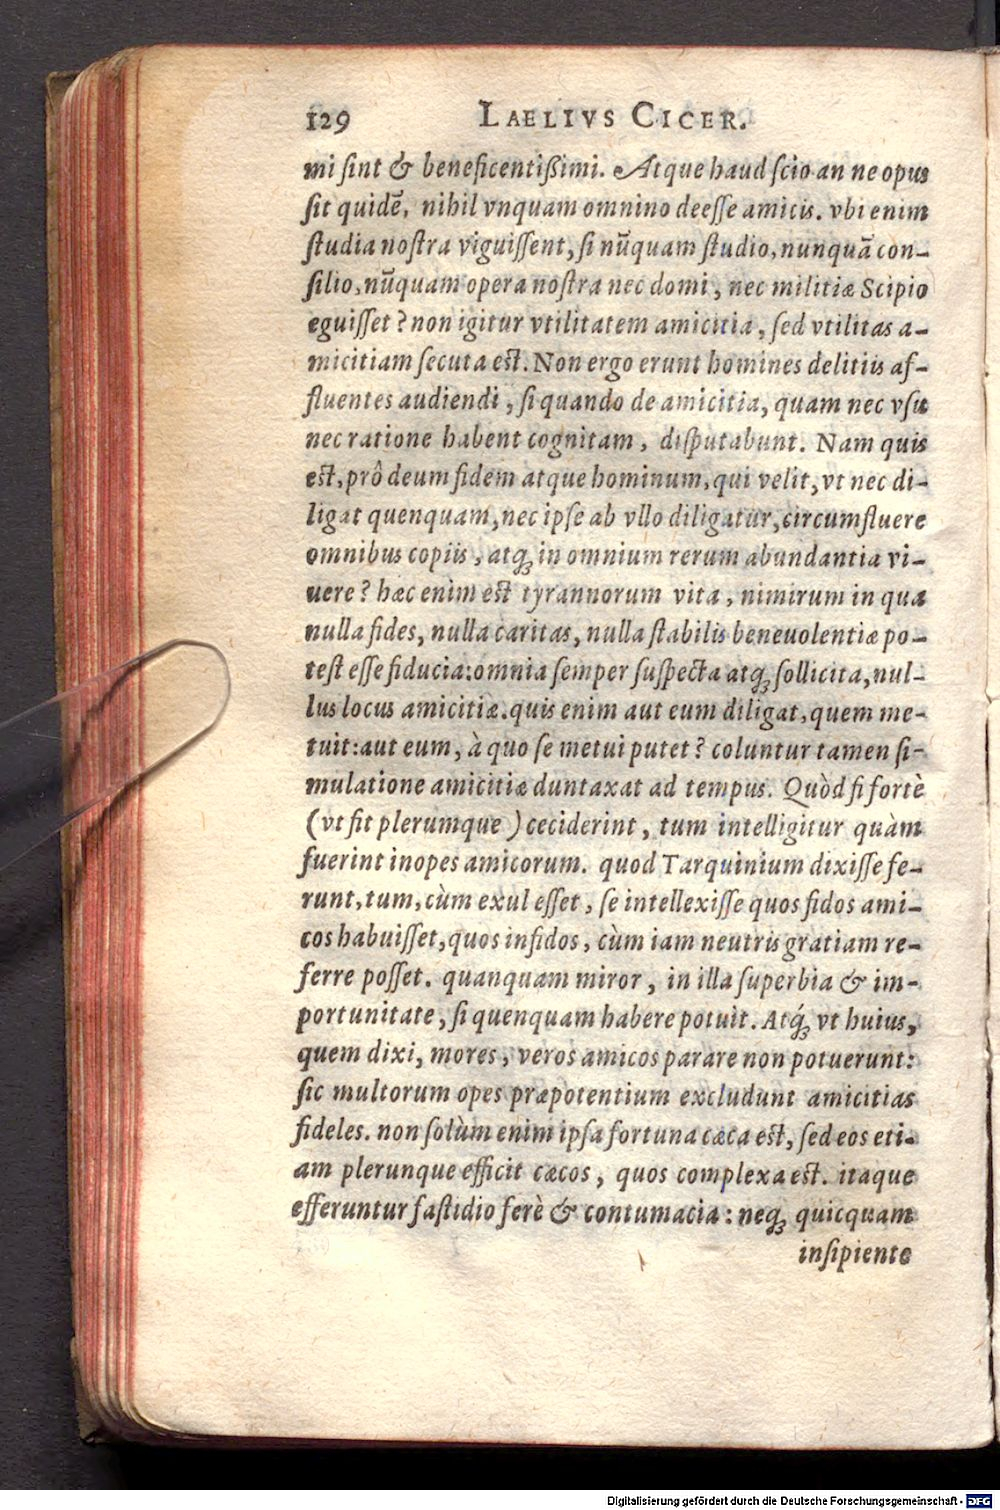 129 LAELIVS CICER.
mi ſint & beneficentißimi. Atque haud ſcio an ne opus
ſit quidẽ, nihil vnquam omnino deeſſe amicis. vbi enim
ſtudia noſtra viguiſſent, ſi nũquam ſtudio, nunquã con-
ſilio, nũquam opera noſtra nec domi, nec militiæ Scipio
eguiſſet? non igitur vtilitatem amicitia, ſed vtilitas a-
micitiam ſecuta eſt. Non ergo erunt homines delitiis af-
fluentes audiendi, ſi quando de amicitia, quam nec vſu
nec ratione habent cognitam, diſputabunt. Nam quis
eſt, prô deum fidem atque hominum, qui velit, vt nec di-
ligat quenquam, nec ipſe ab vllo diligatur, circumfluere
omnibus copiis, atq́; in omnium rerum abundantia vi-
uere? hæc enìm eſt tyrannorum vita, nimirum in qua
nulla fides, nulla caritas, nulla ſtabilis beneuolentiæ po-
teſt eſſe fiducia: omnia ſemper ſuſpecta atq́; ſollicita, nul-
lus locus amicitiæ. quis enim aut eum diligat, quem me-
tuit: aut eum, à quo ſe metui putet? coluntur tamen ſi-
mulatione amicitiæ duntaxat ad tempus. Quòd ſi fortè
(vt fit plerumque) ceciderint, tum intelligitur quàm
fuerint inopes amicorum. quod Tarquinium dixiſſe fe-
runt, tum, cùm exul eſſet, ſe intellexiſſe quos fidos ami-
cos habuiſſet, quos infidos, cùm iam neutris gratiam re-
ferre poſſet. quanquam miror, in illa ſuperbia & im-
portunitate, ſi quenquam habere potuit. Atq́; vt huius,
quem dixi, mores, veros amicos parare non potuerunt:
ſic multorum opes præpotentium excludunt amicitias
fideles. non ſolùm enim ipſa fortuna cæca eſt, ſed eos eti-
am plerunque efficit cæcos, quos complexa eſt. itaque
efferuntur faſtidio ferè & contumacia: neq́; quicquam
inſipiente
Digitalisierung gefördert durch die Deutsche Forschungsgemeinschaft - DFG